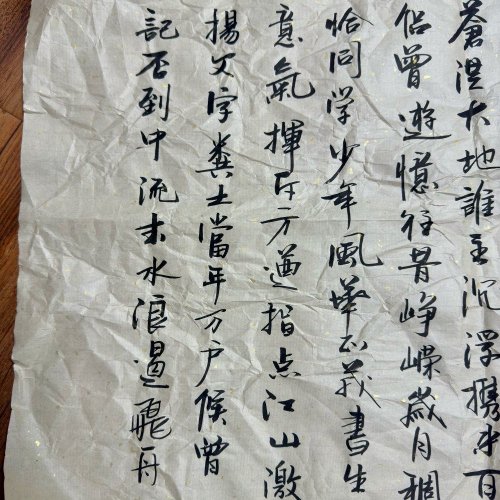 蒼茫大地誰主沉浮攜来百
侶曾遊憶往昔崢嶸歲月稠
恰同学少年風華正茂書生
意氣揮斥方遒指点江山激
揚文字糞土當年万户候曾
記否到中流击水浪遏飛舟